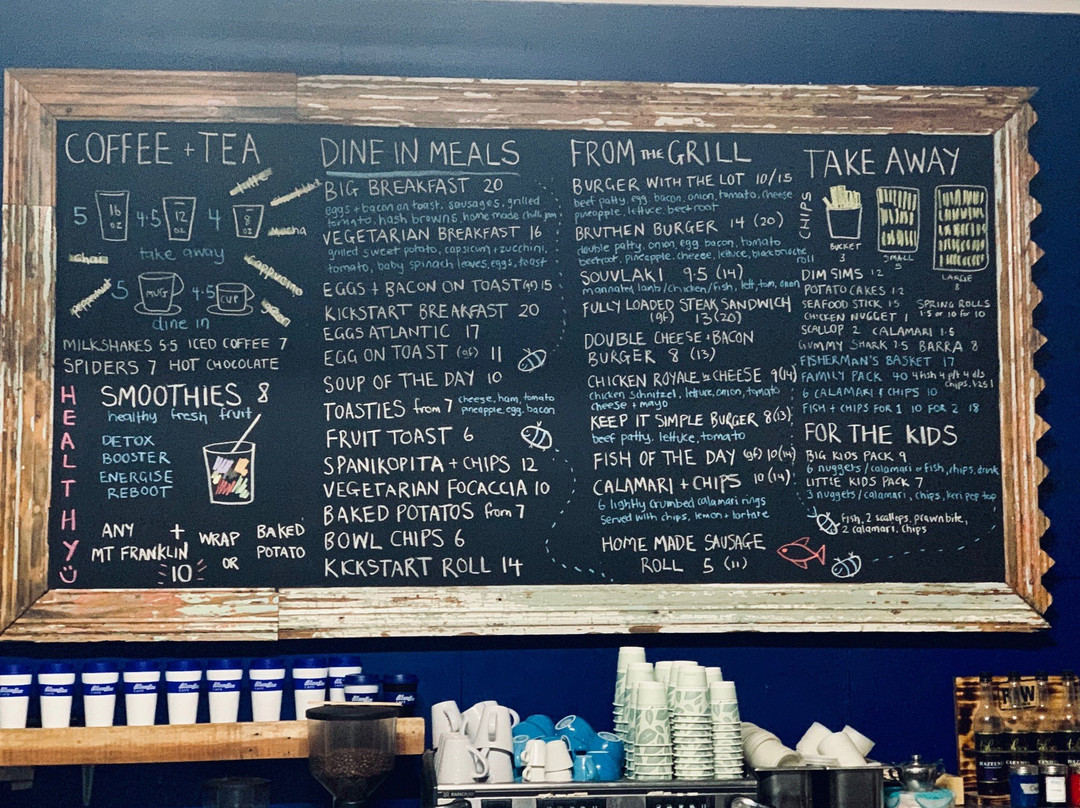 COFFEE + TEA
5
16 oz
4.5
12 oz
4
8 oz
Mocha
take away
chai
cappucino
5
MUG
4.5
CUP
dine in
MILKSHAKES 5.5 ICED COFFEE 7
SPIDERS 7 HOT CHOCOLATE
HEALTHY
SMOOTHIES 8
healthy fresh fruit
DETOX
BOOSTER
ENERGISE
REBOOT
ANY + WRAP BAKED
MT FRANKLIN OR POTATO
10
DINE IN MEALS
BIG BREAKFAST 20
eggs + bacon on toast, sausages, grilled
tomato, hash browns, home made chilli jam
VEGETARIAN BREAKFAST 16
grilled sweet potato, capsicum + zucchini,
tomato, baby spinach leaves, eggs, toast
EGGS + BACON ON TOAST (gf) 15
KICKSTART BREAKFAST 20
EGGS ATLANTIC 17
EGG ON TOAST (gf) 11
SOUP OF THE DAY 10
TOASTIES from 7 cheese, ham, tomato
pineapple, egg, bacon
FRUIT TOAST 6
SPANIKOPITA + CHIPS 12
VEGETARIAN FOCACCIA 10
BAKED POTATOS from 7
BOWL CHIPS 6
KICKSTART ROLL 14
FROM THE GRILL
BURGER WITH THE LOT 10/15
beef patty, egg, bacon, onion, tomato, cheese
pineapple, lettuce, beetroot
BRUTHEN BURGER 14 (20)
double patty, onion, egg, bacon, tomato
beetroot, pineapple, cheese, lettuce, black brioche
roll
SOUVLAKI 9.5 (14)
marinated lamb/chicken/fish, lett, tom, onion
FULLY LOADED STEAK SANDWICH
(gf) 13 (20)
DOUBLE CHEESE + BACON
BURGER 8 (13)
CHICKEN ROYALE w CHEESE 9(14)
chicken schnitzel, lettuce, onion, tomato
cheese + mayo
KEEP IT SIMPLE BURGER 8(13)
beef patty, lettuce, tomato
FISH OF THE DAY (gf) 10(14)
CALAMARI + CHIPS 10 (14)
6 lightly crumbed calamari rings
served with chips, lemon + tartare
HOME MADE SAUSAGE
ROLL 5 (11)
TAKE AWAY
CHIPS
BUCKET
3
SMALL
5
LARGE
8
DIM SIMS 1.2
POTATO CAKES 1.2
SEAFOOD STICK 1.5 SPRING ROLLS
CHICKEN NUGGET 1 1.5 or 10 for 10
SCALLOP 2 CALAMARI 1.5
GUMMY SHARK 7.5 BARRA 8
FISHERMAN'S BASKET 17
FAMILY PACK 40 4 fish 4 p/t 4 d/s
chips, 1.25 l
6 CALAMARI & CHIPS 10
FISH + CHIPS FOR 1 10 FOR 2 18
FOR THE KIDS
BIG KIDS PACK 9
6 nuggets/calamari or fish, chips, drink
LITTLE KIDS PACK 7
3 nuggets/calamari, chips, keri pop top
fish, 2 scallops, prawn bite,
2 calamari, chips
RAW